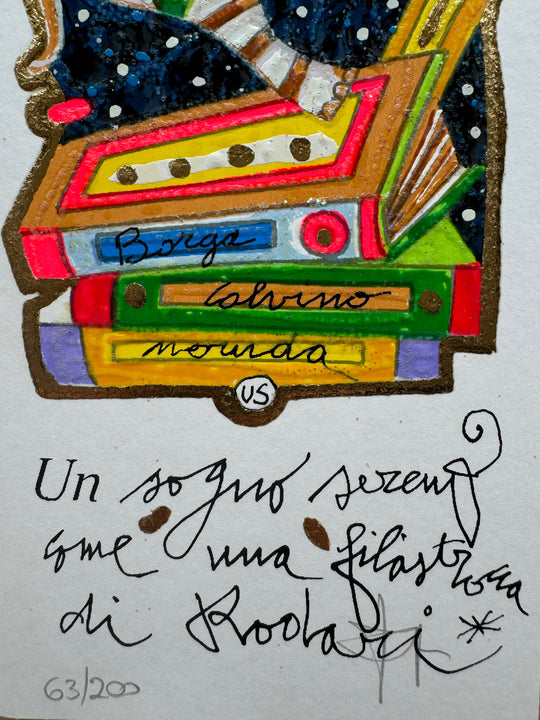 Borga
Calvino
Neruda
US
Un sogno sereno
come una filastrocca
di Rodari *
63/200